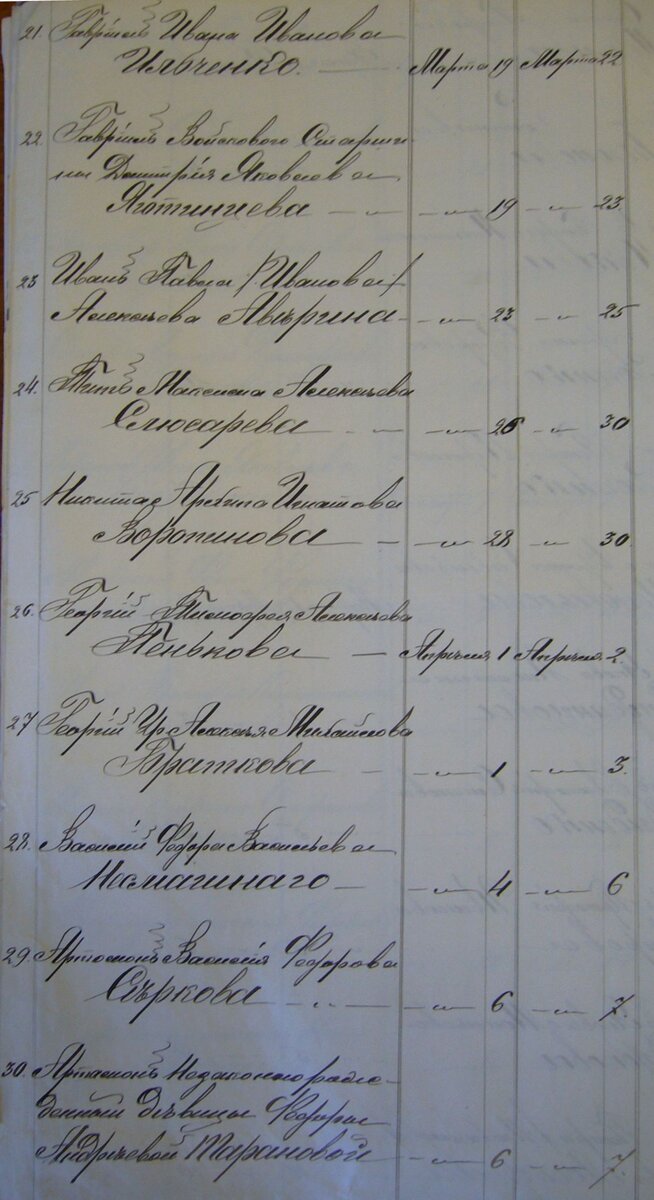 21. Гавріилъ Ивана Иванова
Ильченко. — Марта 19 Марта 22
22. Гавріилъ Войскового Старши-
ны Дмитрія Яковлева
— „ — — „ — 19 — „ — 23.
23 Иванъ Павла /Иванова/
Алексѣева Авѣрина — „ — 23 — „ — 25
24. Титъ Максима Алексѣева
Слюсарева — „ — — „ — 26 — „ — 30
25 Никита Игнатова
Воропинова — — „ — 28 — „ — 30.
26. Георгій Тимофея Алексѣева
Пенькова — Апрѣля 1 Апрѣля 2.
27 Георгій Ур Алексѣя Михайлова
Браткова — — „ — 1 — „ — 3.
28. Василій Федора Васильева
— — „ — 4 — „ — 6
29. Артамонъ Василія Федорова
Сѣркова — „ — — „ — 6 — „ — 7.
30. Артамонъ Незаконнорож-
денный дѣвицы Федоры
Андрѣевой Тарановой — „ — 6 — „ — 7.